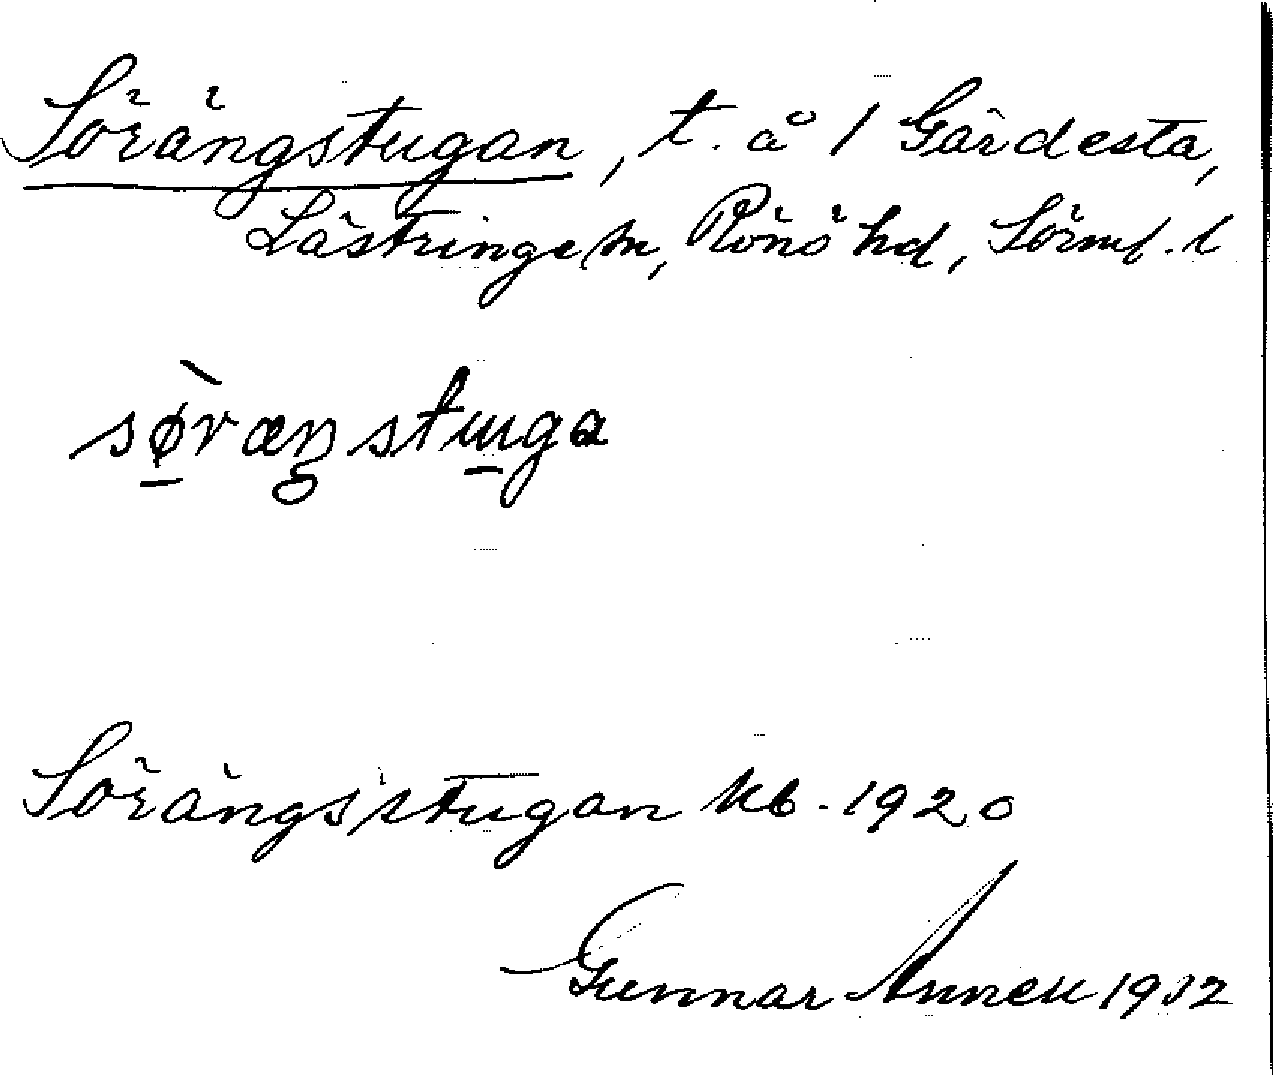 Sörängstugan, t. å 1 Gärdesta,
Lästringe sn, Rönö hd, Sörml. l
sø̀ræŋstuga
Sörängsstugan kb. 1920
Gunnar Annell 1932